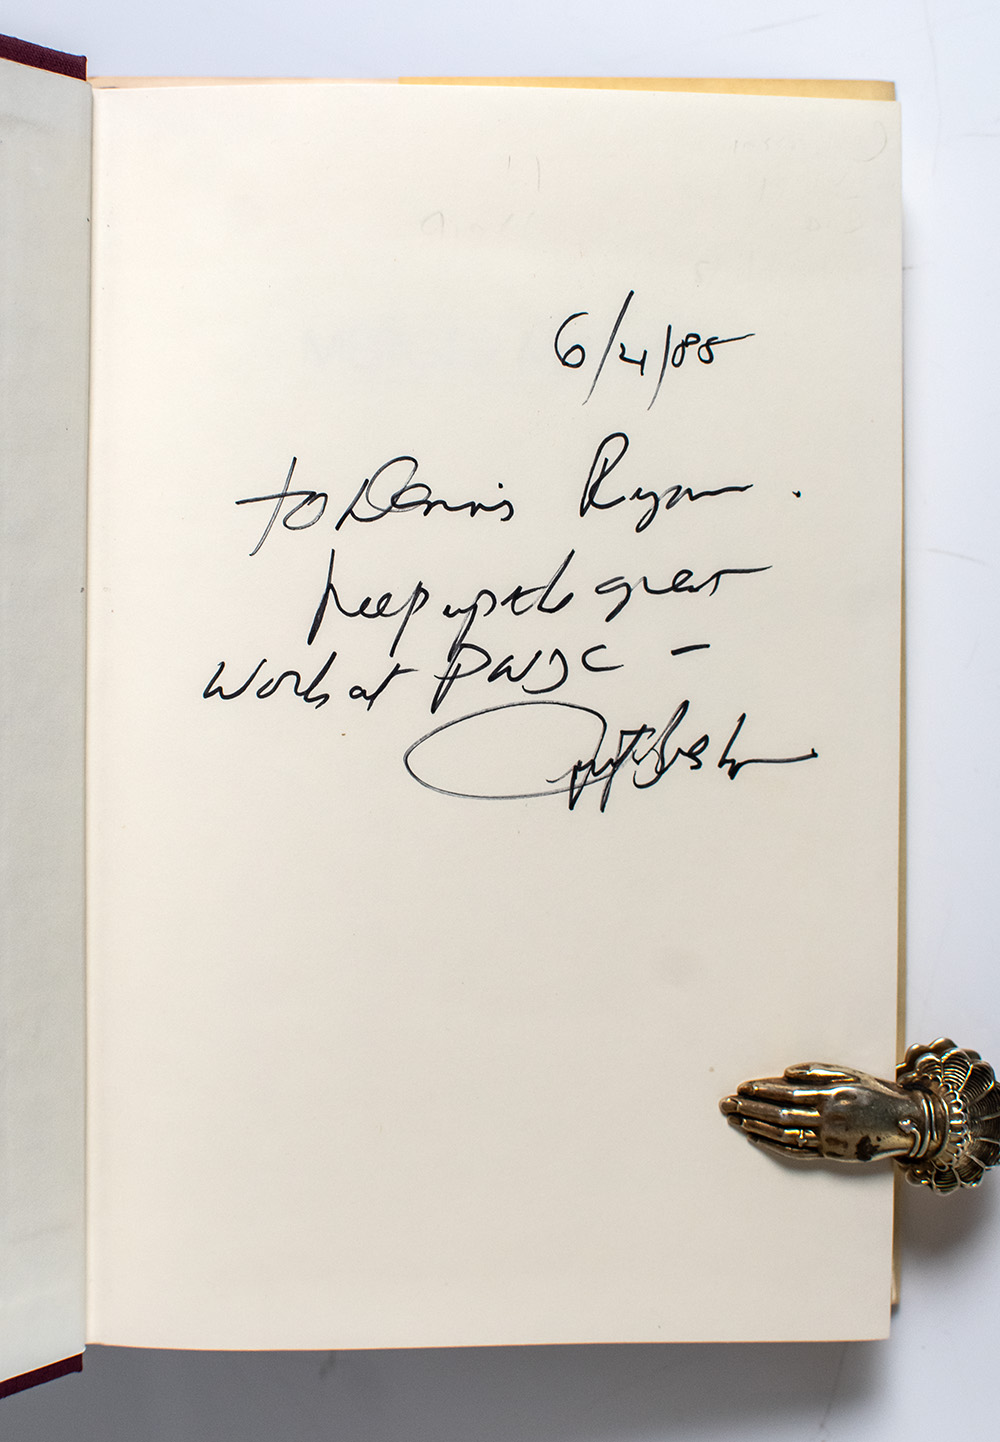 6/4/85
to Dennis Ryan.
keep up the great
work at PWJC -